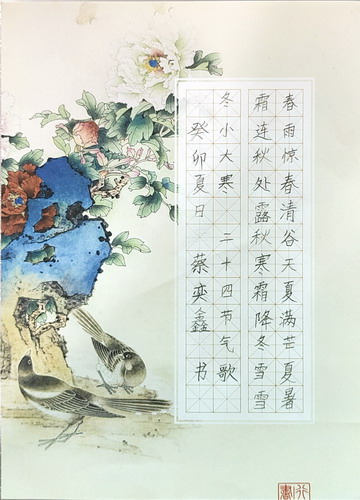 春雨惊春清谷天夏满芒夏暑
霜连秋处露秋寒霜降冬雪雪
冬小大寒 二十四节气歌
癸卯夏日 蔡奕鑫 书